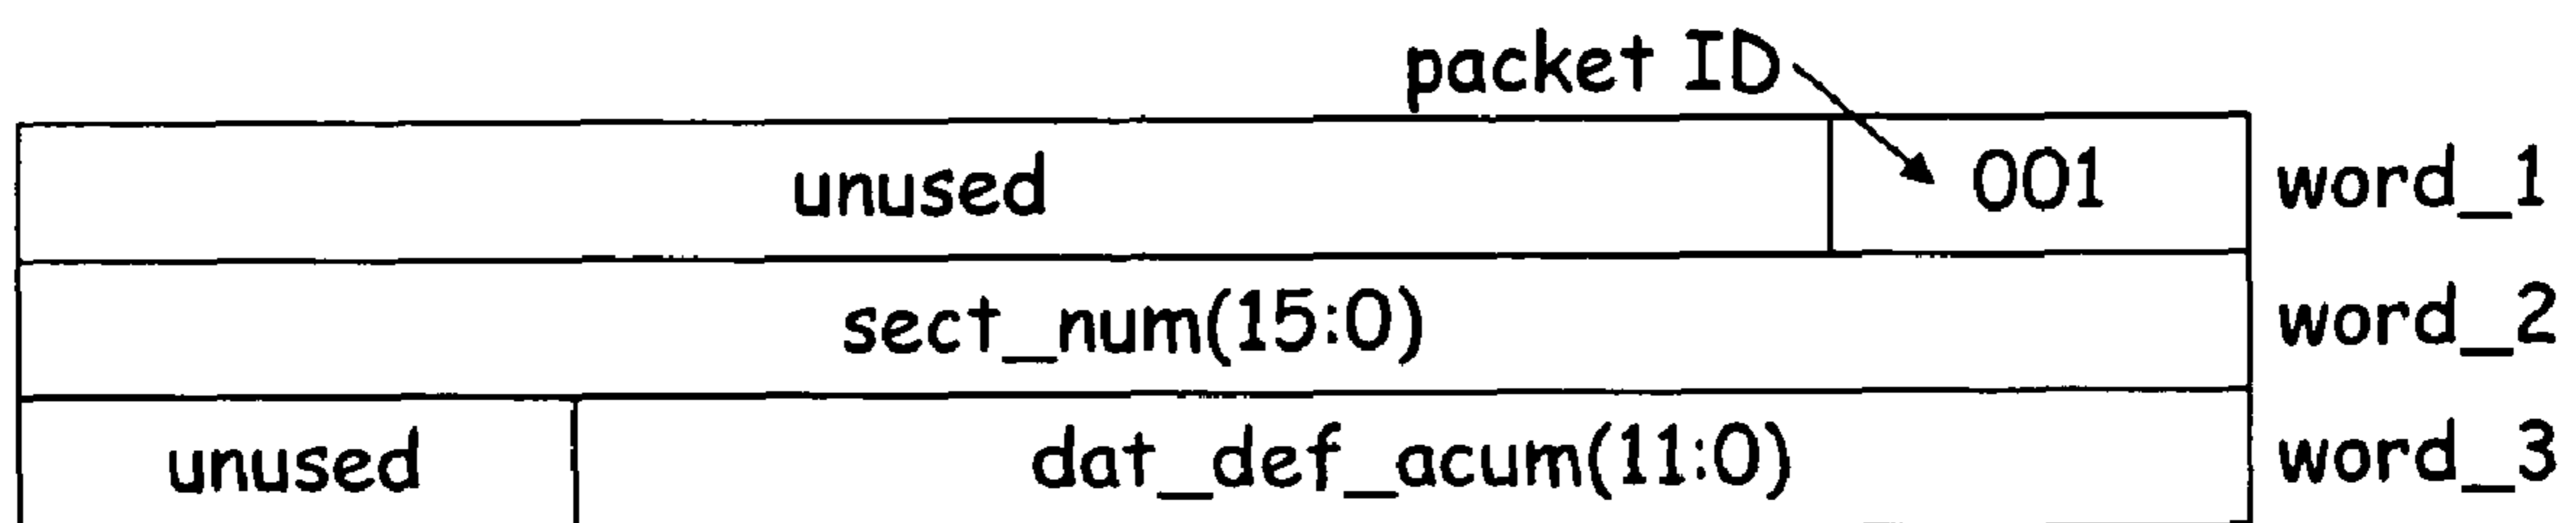 packet ID
unused 001 word_1
sect_num(15:0) word_2
unused dat_def_acum(11:0) word_3